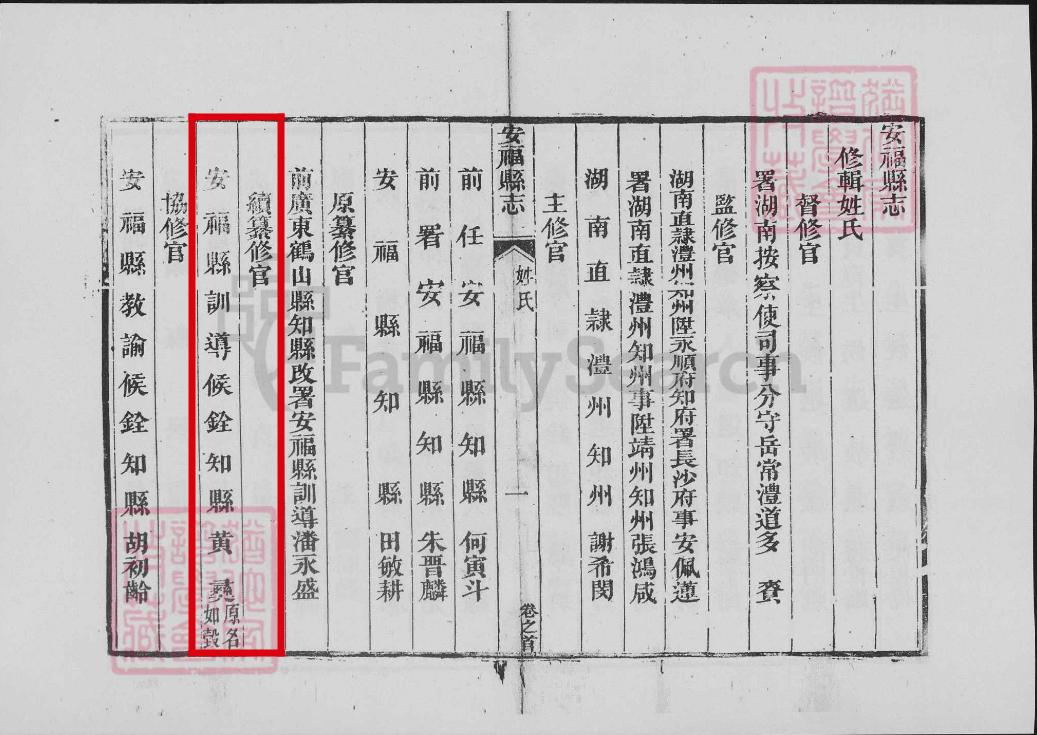 安福縣志
修輯姓氏
督修官
署湖南按察使司事分守岳常澧道多 賚
監修官
湖南直隸澧州知州陞永順府知府署長沙府事安佩蓮
署湖南直隸澧州知州事陞靖州知州張鴻咸
湖南直隸澧州知州謝希閔
主修官
安福縣志 姓氏 一 卷之首
前任安福縣知縣何寅斗
前署安福縣知縣朱晋麟
安福縣知縣田敏耕
原纂修官
前廣東鶴山縣知縣改署安福縣訓導潘永盛
續纂修官
安福縣訓導候銓知縣黄彞原名如瑴
協修官
安福縣教諭候銓知縣胡初齡
FamilySearch